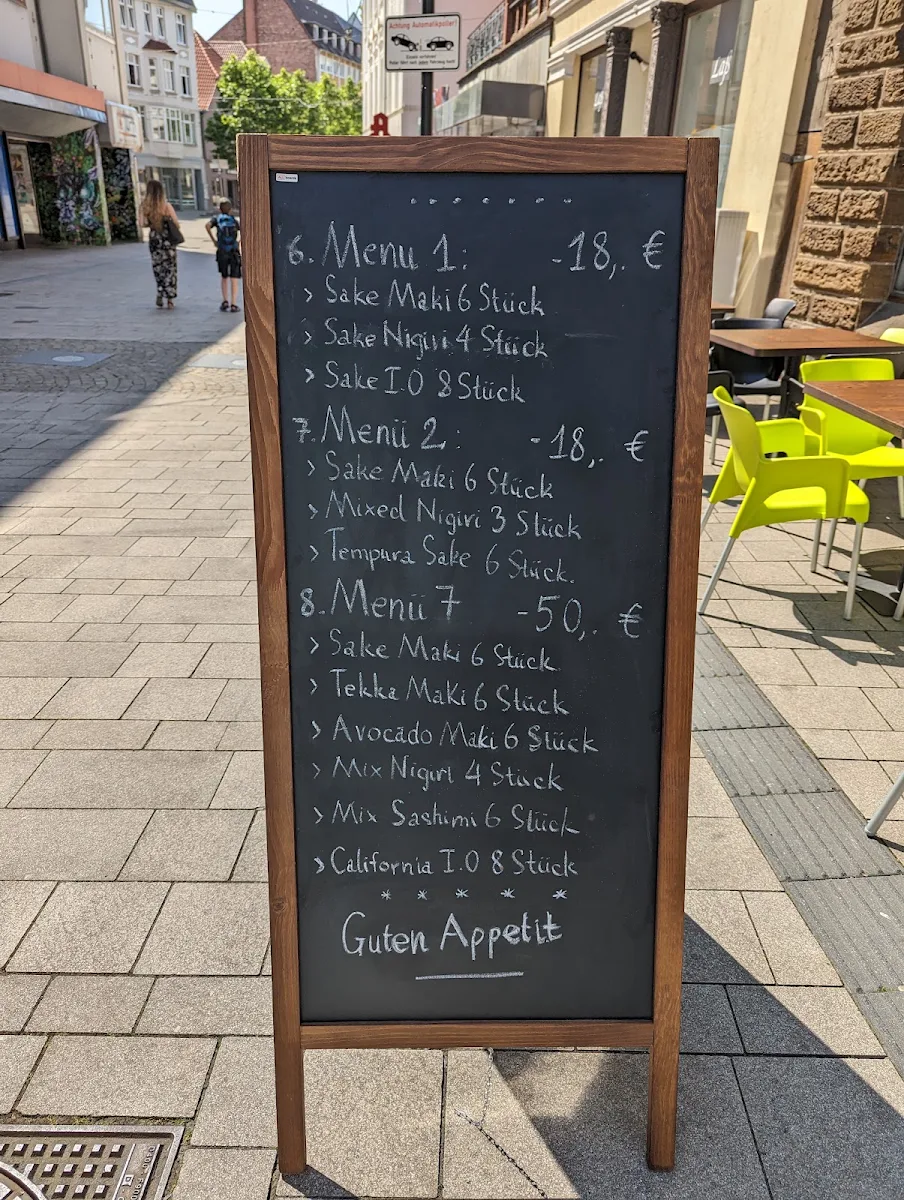 Achtung Automatikpoller!
6. Menu 1: -18,. €
> Sake Maki 6 Stück
> Sake Nigiri 4 Stück
> Sake I.O 8 Stück
7. Menü 2: -18,. €
> Sake Maki 6 Stück
> Mixed Nigiri 3 Stück
> Tempura Sake 6 Stück.
8. Menü 7 -50,. €
> Sake Maki 6 Stück
> Tekka Maki 6 Stück
> Avocado Maki 6 Stück
> Mix Nigiri 4 Stück
> Mix Sashimi 6 Stück
> California I.O 8 Stück
* * * * *
Guten Appetit